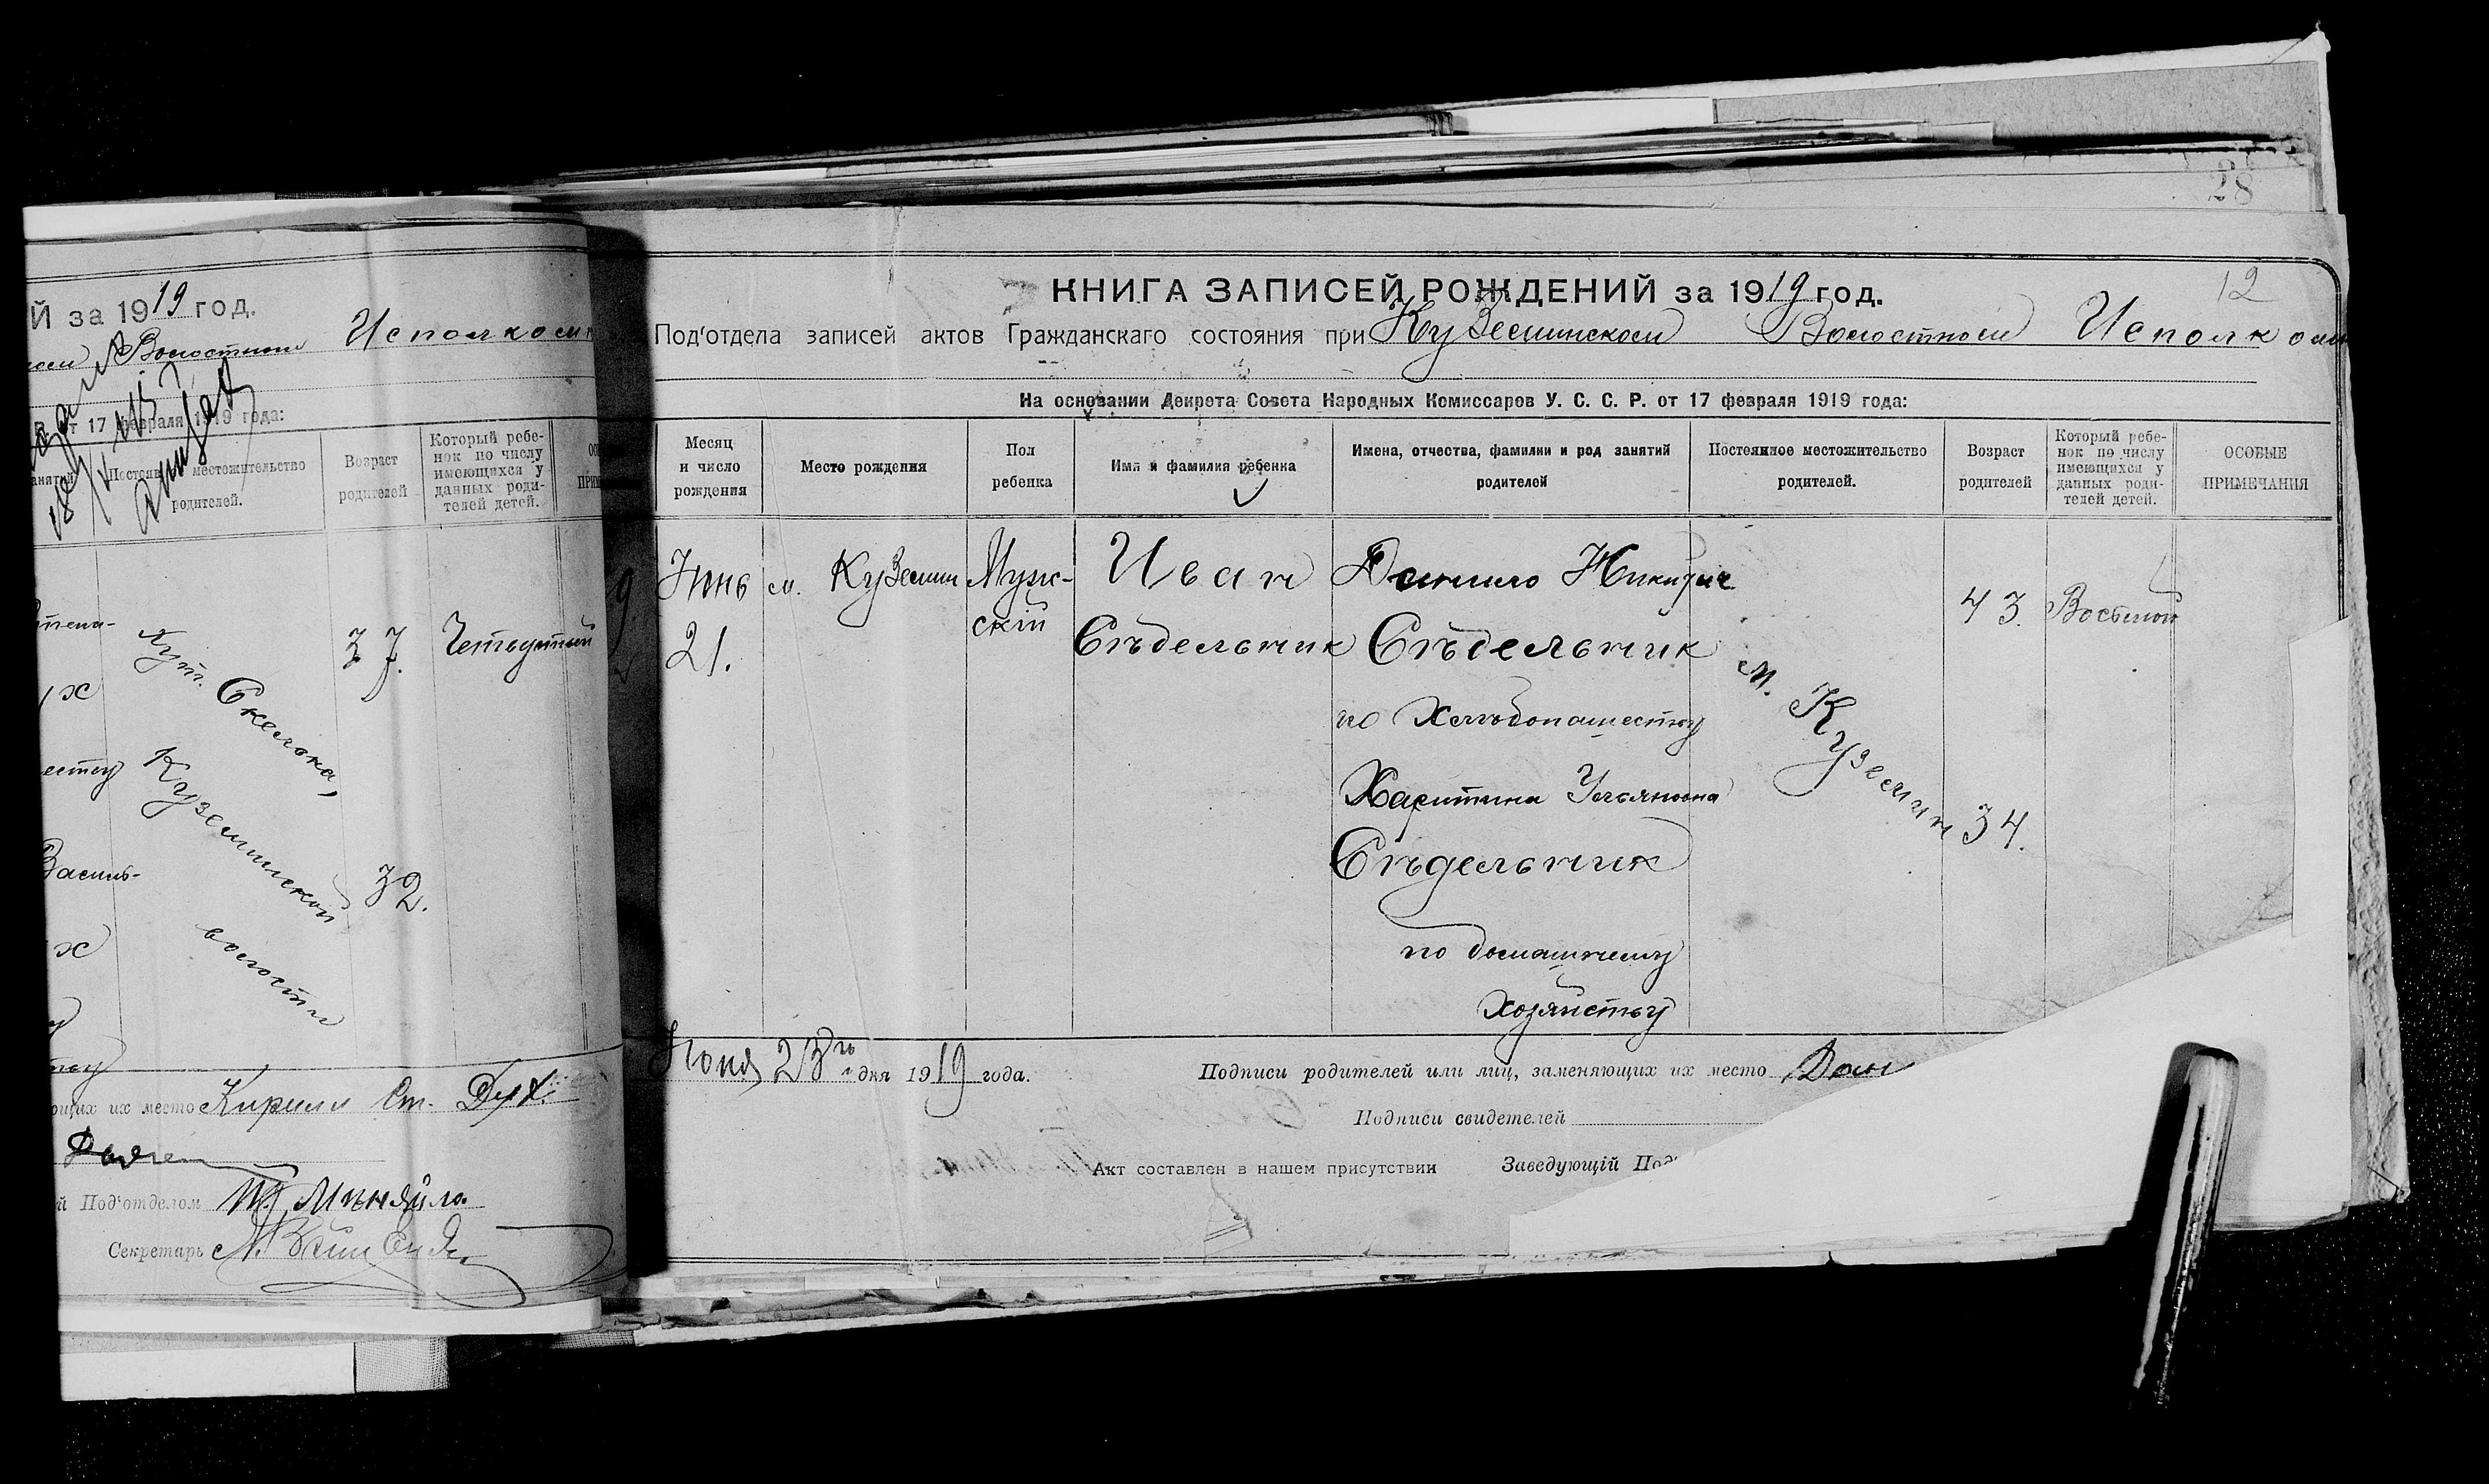 28
Й за 1919 год.
Волостном Исполком
от 17 февраля 1919 года:
занятий
Постоян местожительство
родителей.
Возраст
родителей
Который ребе-
нок по числу
имеющихся у
данных роди-
телей детей.
Хут. Скелька,
Куземинской
волости
37.
Четвертый
Василь-
32.
ющих их место Кирилл Ст. Дух.
й Под'отделом
Секретарь
12
КНИГА ЗАПИСЕЙ РОЖДЕНИЙ за 1919 год.
Под'отдела записей актов Гражданскаго состояния при Куземинском Волостном Исполком
На основании Декрета Совета Народных Комиссаров У. С. С. Р. от 17 февраля 1919 года:
Месяц
и число
рождения
Место рождения
Пол
ребенка
Имя и фамилия ребенка
Имена, отчества, фамилии и род занятий
родителей
Постоянное местожительство
родителей.
Возраст
родителей
Который ребе-
нок по числу
имеющихся у
данных роди-
телей детей.
ОСОБЫЕ
ПРИМЕЧАНИЯ
Июнь
21.
м. Куземин
Муж-
скій
Иван
Сѣдельник
Данило Никифор
Сѣдельник
по Хлѣбопашеству
Харитина Ульяновна
Сѣдельник
по домашнему
хозяйству
м. Куземин
43.
34.
Восьмой
Июня 23го дня 1919 года.
Подписи родителей или лиц, заменяющих их место Дан
Подписи свидетелей
Акт составлен в нашем присутствии Заведующій Под'